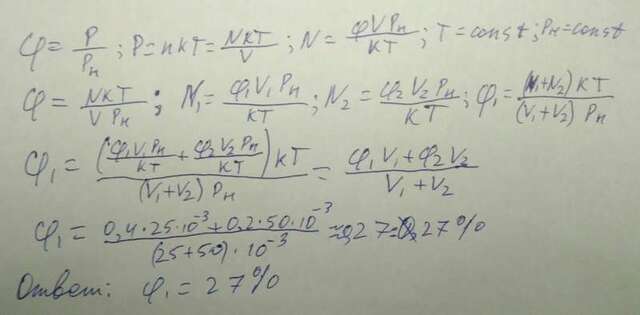 φ = P/Pн ; P = nkT = NkT/V ; N = φVPн/kT ; T = const ; Pн = const
φ = NkT/VPн ; N₁ = φ₁V₁Pн/kT ; N₂ = φ₂V₂Pн/kT ; φ₁ = (N₁+N₂)kT/(V₁+V₂)Pн
φ₁ = (φ₁V₁Pн/kT + φ₂V₂Pн/kT)kT/(V₁+V₂)Pн = φ₁V₁+φ₂V₂/V₁+V₂
φ₁ = 0,4·25·10⁻³+0,2·50·10⁻³/(25+50)·10⁻³ ≈ 0,27 = 27%
Ответ: φ₁ = 27%